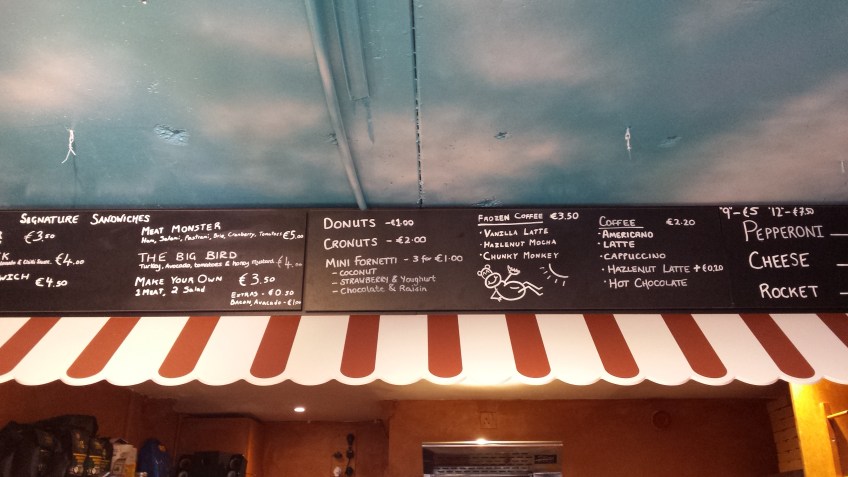 SIGNATURE SANDWICHES
€3.50
€4.00
& Chilli Sauce
WICH €4.50
MEAT MONSTER
Ham, Salami, Pastrami, Brie, Cranberry, Tomatoes €5.00
THE BIG BIRD
Turkey, Avocado, tomatoes & honey mustard €4.
MAKE YOUR OWN €3.50
1 MEAT, 2 Salad
EXTRAS - €0.50
BACON, AVOCADO -
DONUTS - €1.00
CRONUTS - €2.00
MINI FORNETTI - 3 for €1.00
- COCONUT
- STRAWBERRY & Youghurt
- Chocolate & Raisin
FROZEN COFFEE €3.50
· VANILLA LATTE
· HAZLENUT MOCHA
· CHUNKY MONKEY
COFFEE €2.20
· AMERICANO
· LATTE
· CAPPUCCINO
· HAZLENUT LATTE + €0.20
· HOT CHOCOLATE
"9" - €5 "12" - €7.50
PEPPERONI
CHEESE
ROCKET